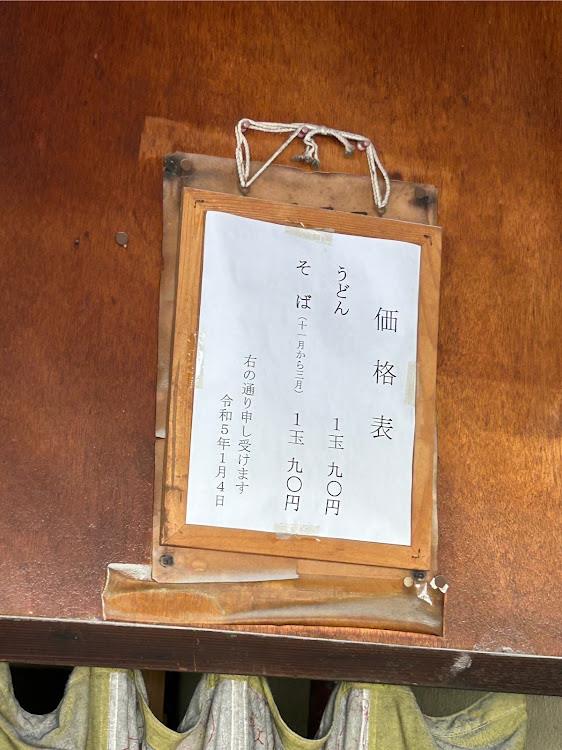 価格表
うどん 1玉 九〇円
そば（十一月から三月） 1玉 九〇円
右の通り申し受けます
令和5年1月4日